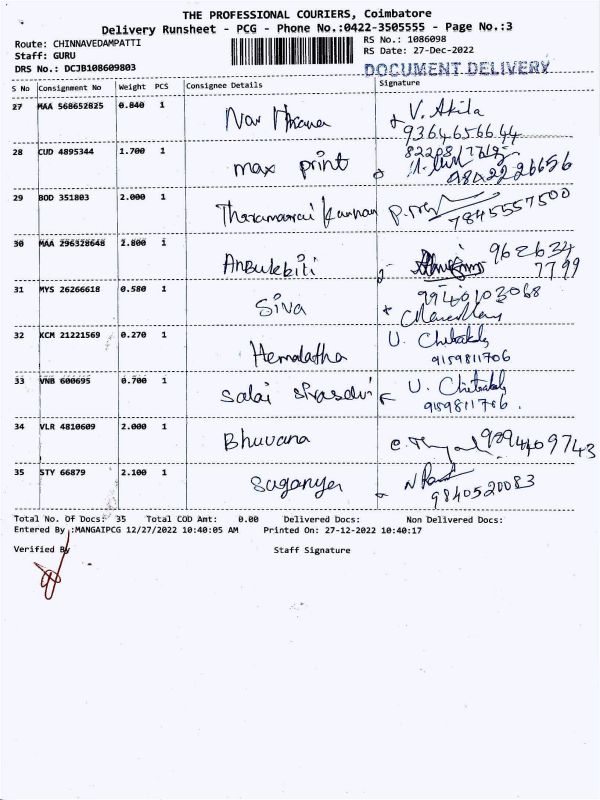 THE PROFESSIONAL COURIERS, Coimbatore
Delivery Runsheet - PCG - Phone No.:0422-3505555 - Page No.:3
Route: CHINNAVEDAMPATTI
RS No.: 1086098
Staff: GURU
RS Date: 27-Dec-2022
DRS No.: DCJB108609803
DOCUMENT DELIVERY
S No Consignment No Weight PCS Consignee Details Signature
27 MAA 568652825 0.840 1 V. Akila
9364656644
28 CUD 4895344 1.700 1 max print
9842226656
29 BOD 351803 2.000 1 7845557500
30 MAA 296328648 2.800 1 962634
7799
31 MYS 26266618 0.580 1 Siva 9940103068
32 KCM 21221569 0.270 1 Hemalatha U.
9159811706
33 VNB 600695 0.700 1 Salai U.
9159811706.
34 VLR 4810609 2.000 1 Bhuvana 9294409743
35 STY 66879 2.100 1 Suganya
9840520083
Total No. Of Docs: 35 Total COD Amt: 0.00 Delivered Docs: Non Delivered Docs:
Entered By :MANGAIPCG 12/27/2022 10:40:05 AM Printed On: 27-12-2022 10:40:17
Verified By Staff Signature